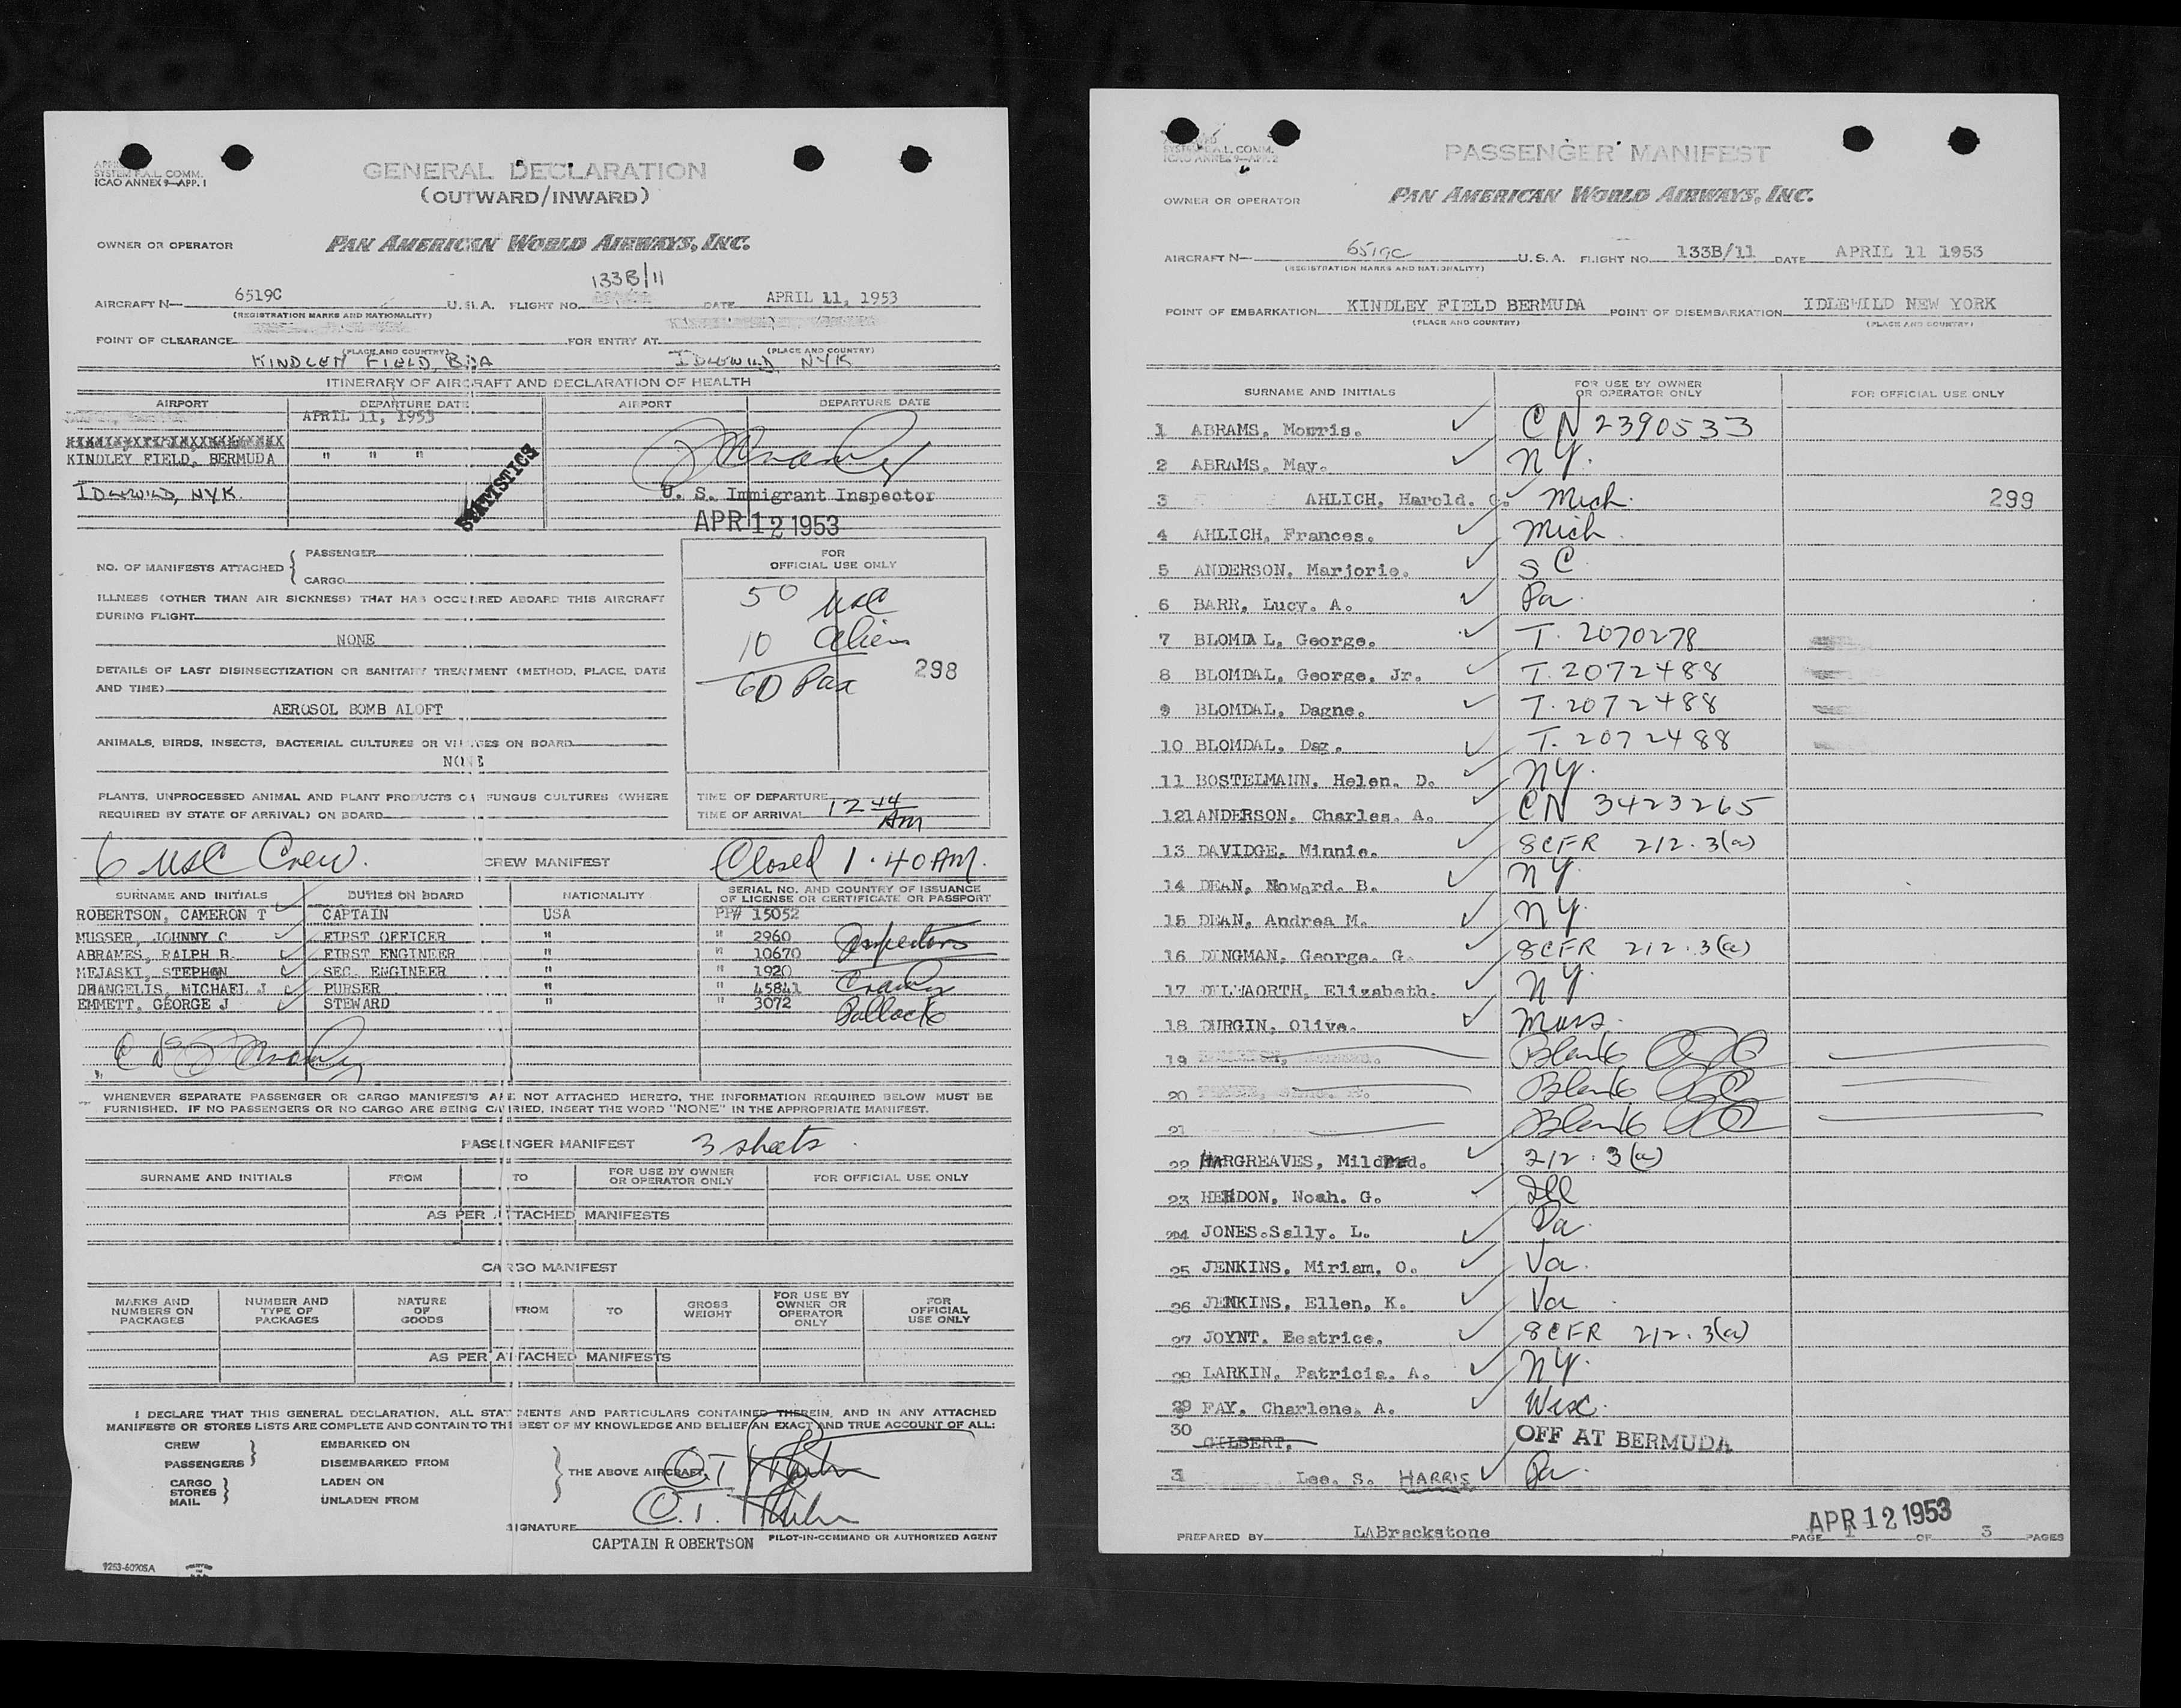 SYSTEM F.A.L. COMM.
ICAO ANNEX 9—APP. 1
GENERAL DECLARATION
(OUTWARD/INWARD)
OWNER OR OPERATOR
PAN AMERICAN WORLD AIRWAYS, INC.
133B/11
AIRCRAFT N— 6519C U.S.A. FLIGHT NO. DATE APRIL 11, 1953
(REGISTRATION MARKS AND NATIONALITY)
POINT OF CLEARANCE FOR ENTRY AT
(PLACE AND COUNTRY) (PLACE AND COUNTRY)
KINDLEY FIELD, BDA IDLEWILD NYK
ITINERARY OF AIRCRAFT AND DECLARATION OF HEALTH
AIRPORT DEPARTURE DATE AIRPORT DEPARTURE DATE
APRIL 11, 1953
KINDLEY FIELD, BERMUDA " " "
IDLEWILD, NYK.
STATISTICS
U. S. Immigrant Inspector
APR 12 1953
NO. OF MANIFESTS ATTACHED { PASSENGER
CARGO
FOR
OFFICIAL USE ONLY
50 USC
10 Alien
60 Pax
298
ILLNESS (OTHER THAN AIR SICKNESS) THAT HAS OCCURRED ABOARD THIS AIRCRAFT
DURING FLIGHT
NONE
DETAILS OF LAST DISINSECTIZATION OR SANITARY TREATMENT (METHOD, PLACE, DATE
AND TIME)
AEROSOL BOMB ALOFT
ANIMALS, BIRDS, INSECTS, BACTERIAL CULTURES OR VIRUSES ON BOARD
NONE
PLANTS, UNPROCESSED ANIMAL AND PLANT PRODUCTS OR FUNGUS CULTURES (WHERE
REQUIRED BY STATE OF ARRIVAL) ON BOARD
TIME OF DEPARTURE
TIME OF ARRIVAL 12 44 AM
6 USC Crew. CREW MANIFEST Closed 1.40 AM.
SURNAME AND INITIALS DUTIES ON BOARD NATIONALITY SERIAL NO. AND COUNTRY OF ISSUANCE
OF LICENSE OR CERTIFICATE OR PASSPORT
ROBERTSON, CAMERON T CAPTAIN USA PP# 15052
MUSSER, JOHNNY C FIRST OFFICER " " 2960 Inspectors
ABRAMES, RALPH B. FIRST ENGINEER " " 10670
MEJASKI, STEPHEN SEC. ENGINEER " " 1920
DEANGELIS, MICHAEL J PURSER " " 45841
EMMETT, GEORGE J STEWARD " " 3072 Pollack
WHENEVER SEPARATE PASSENGER OR CARGO MANIFESTS ARE NOT ATTACHED HERETO, THE INFORMATION REQUIRED BELOW MUST BE
FURNISHED. IF NO PASSENGERS OR NO CARGO ARE BEING CARRIED, INSERT THE WORD "NONE" IN THE APPROPRIATE MANIFEST.
PASSENGER MANIFEST 3 sheets
SURNAME AND INITIALS FROM TO FOR USE BY OWNER
OR OPERATOR ONLY FOR OFFICIAL USE ONLY
AS PER ATTACHED MANIFESTS
CARGO MANIFEST
MARKS AND
NUMBERS ON
PACKAGES NUMBER AND
TYPE OF
PACKAGES NATURE
OF
GOODS FROM TO GROSS
WEIGHT FOR USE BY
OWNER OR
OPERATOR
ONLY FOR
OFFICIAL
USE ONLY
AS PER ATTACHED MANIFESTS
I DECLARE THAT THIS GENERAL DECLARATION, ALL STATEMENTS AND PARTICULARS CONTAINED THEREIN, AND IN ANY ATTACHED
MANIFESTS OR STORES LISTS ARE COMPLETE AND CONTAIN TO THE BEST OF MY KNOWLEDGE AND BELIEF AN EXACT AND TRUE ACCOUNT OF ALL:
CREW EMBARKED ON
PASSENGERS DISEMBARKED FROM
CARGO LADEN ON
STORES
MAIL UNLADEN FROM
THE ABOVE AIRCRAFT.
SIGNATURE
CAPTAIN ROBERTSON PILOT-IN-COMMAND OR AUTHORIZED AGENT
9253-60905A
SYSTEM F.A.L. COMM.
ICAO ANNEX 9—APP. 2
PASSENGER MANIFEST
OWNER OR OPERATOR PAN AMERICAN WORLD AIRWAYS, INC.
AIRCRAFT N— 6519C U.S.A. FLIGHT NO. 133B/11 DATE APRIL 11 1953
(REGISTRATION MARKS AND NATIONALITY)
POINT OF EMBARKATION KINDLEY FIELD BERMUDA POINT OF DISEMBARKATION IDLEWILD NEW YORK
(PLACE AND COUNTRY) (PLACE AND COUNTRY)
SURNAME AND INITIALS FOR USE BY OWNER
OR OPERATOR ONLY FOR OFFICIAL USE ONLY
1 ABRAMS, Morris. CN 2390533
2 ABRAMS, May. NY.
3 AHLICH, Harold. C. Mich. 299
4 AHLICH, Frances. Mich
5 ANDERSON, Marjorie. S C
6 BARR, Lucy. A. Pa.
7 BLOMDAL, George. T. 2070278
8 BLOMDAL, George, Jr. T. 2072488
9 BLOMDAL, Dagne. T. 2072488
10 BLOMDAL, Dag. T. 2072488
11 BOSTELMANN, Helen. D. NY.
12 ANDERSON, Charles. A. CN 3423265
13 DAVIDGE, Minnie. 8CFR 212.3(a)
14 DEAN, Howard. B. NY.
15 DEAN, Andrea M. NY.
16 DINGMAN, George. G. 8CFR 212.3(a)
17 DILWAORTH, Elizabeth. NY
18 DURGIN, Olive. Mass.
19 Blank
20 Blank
21 Blank
22 HARGREAVES, Mildred. 212.3(a)
23 HERDON, Noah. G. Ill
24 JONES.Sally. L. Pa.
25 JENKINS, Miriam, O. Va.
26 JENKINS, Ellen, K. Va
27 JOYNT. Beatrice. 8CFR 212.3(a)
28 LARKIN, Patricia. A. NY.
29 FAY. Charlene. A. Wisc.
30 GILBERT, OFF AT BERMUDA
3 Lee. S. HARRIS Pa.
PREPARED BY LABrackstone
APR 12 1953
PAGE 1 OF 3 PAGES